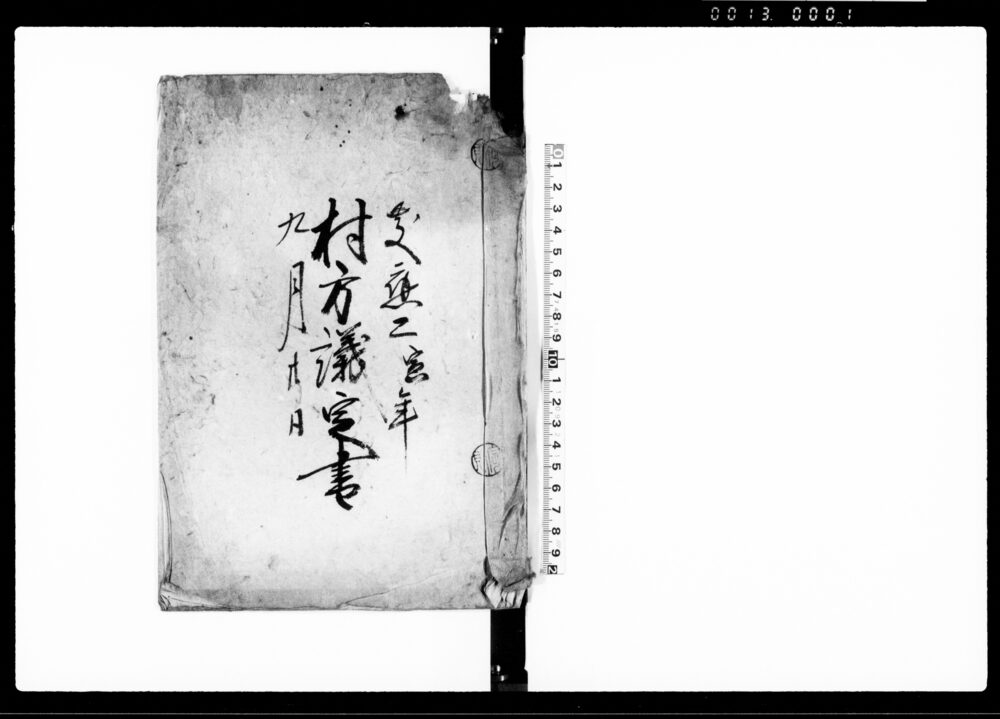 0013. 0001
慶應二寅年
村方議定書
九月 日
0 1 2 3 4 5 6 7 8 9 10 1 2 3 4 5 6 7 8 9 2